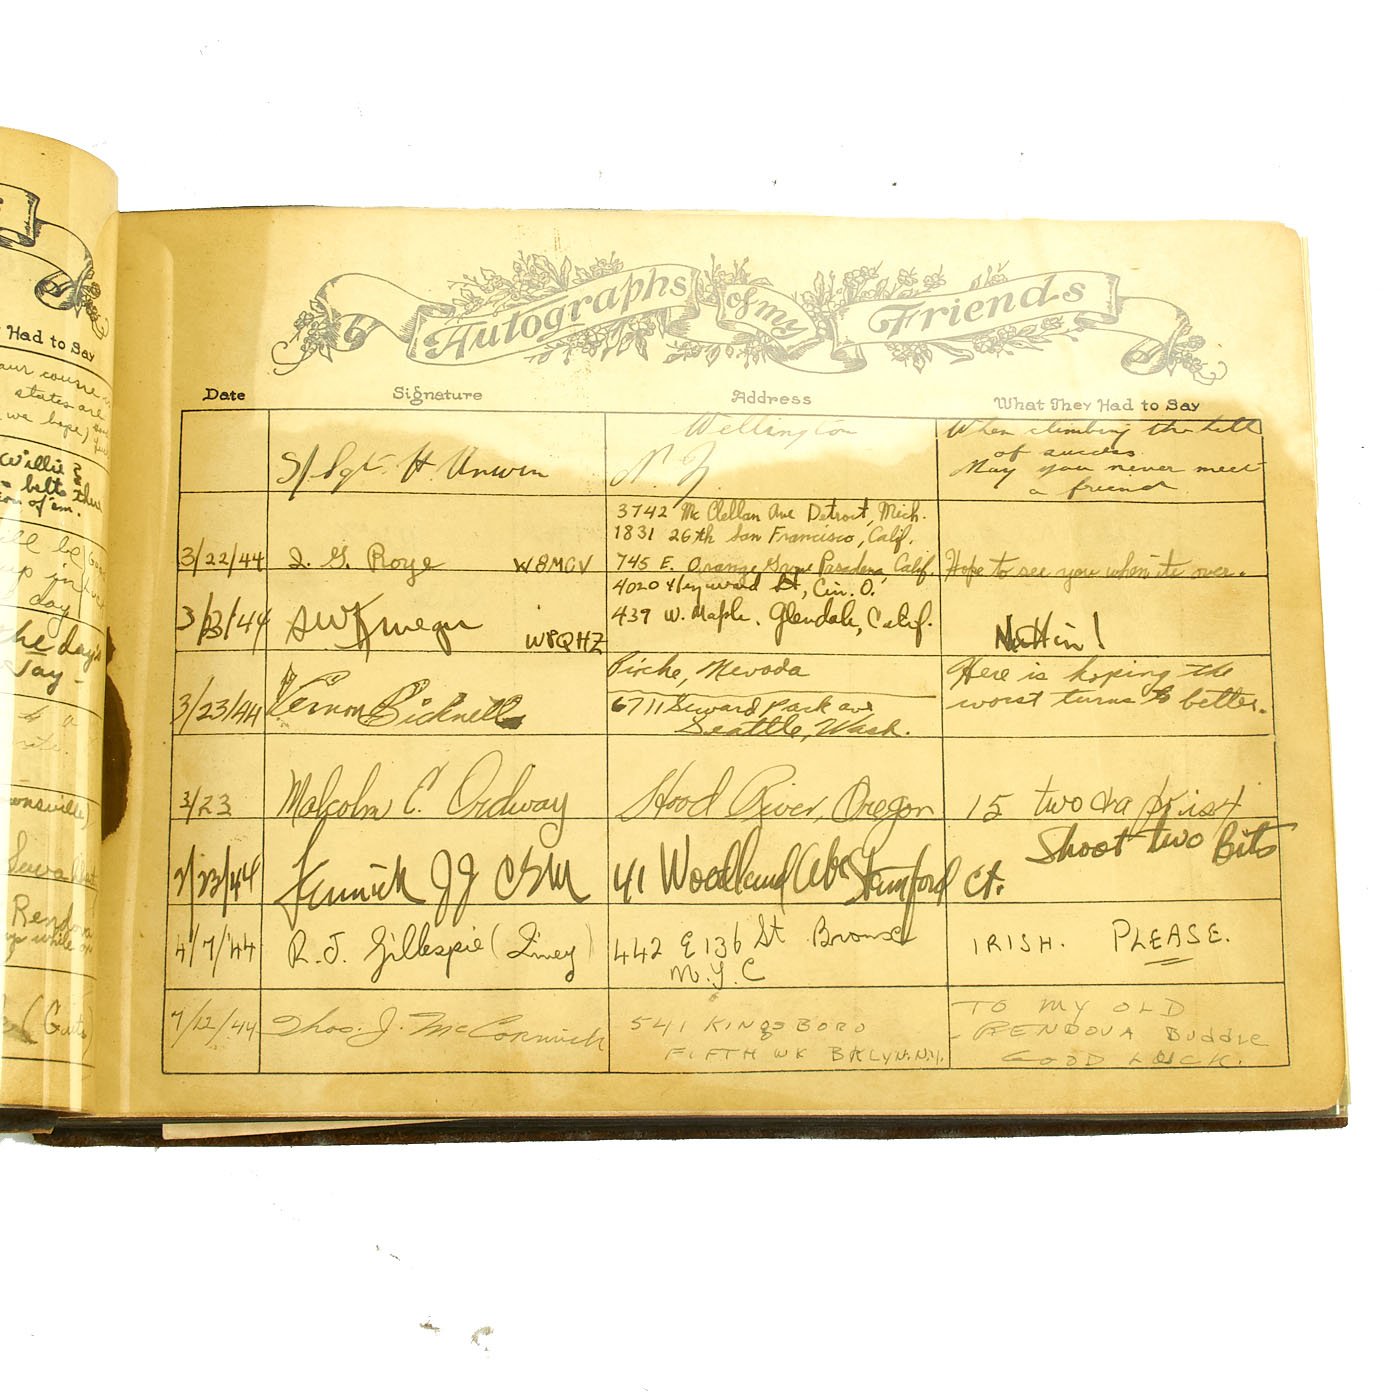 Had to Say
our course
states are
we hope)
Willie &
belts
of 'em.
up in
day
the day's
Jay -
Rendova
(Guts)
Autographs of my Friends
Date Signature Address What They Had to Say
S/Sgt. H Unwin Wellington
N. Z.
When climbing the hill
of success
May you never meet
a friend
3/22/44 I. G. Roye W8MCV
3742 Mc Clellan Ave Detroit, Mich.
1831 26th San Francisco, Calif.
745 E. Orange Grove Pasadena, Calif.
Hope to see you when its over.
3/23/44 SWKruegar W8QHZ
4020 St, Cin. O.
439 W. Maple. Glendale, Calif.
Nuthin!
3/23/44 Vernon Bicknell
Nevada
6711 Seward Park ave
Seattle, Wash.
Here is hoping the
worst turns to better.
3/23 Malcolm E. Ordway Hood River, Oregon 15 two
/23/44 JJ CBM 41 Woodland Ave Stamford Ct. Shoot two Bits
4/7/44 R. J. Gillespie (Limey) 442 E 136 St Bronx
N.Y.C
IRISH. PLEASE.
7/12/44 Thos. J. McCormick
541 KINGSBORO
FIFTH WK BKLYN. N.Y.
TO MY OLD
RENDOVA BUDDIE
GOOD LUCK.